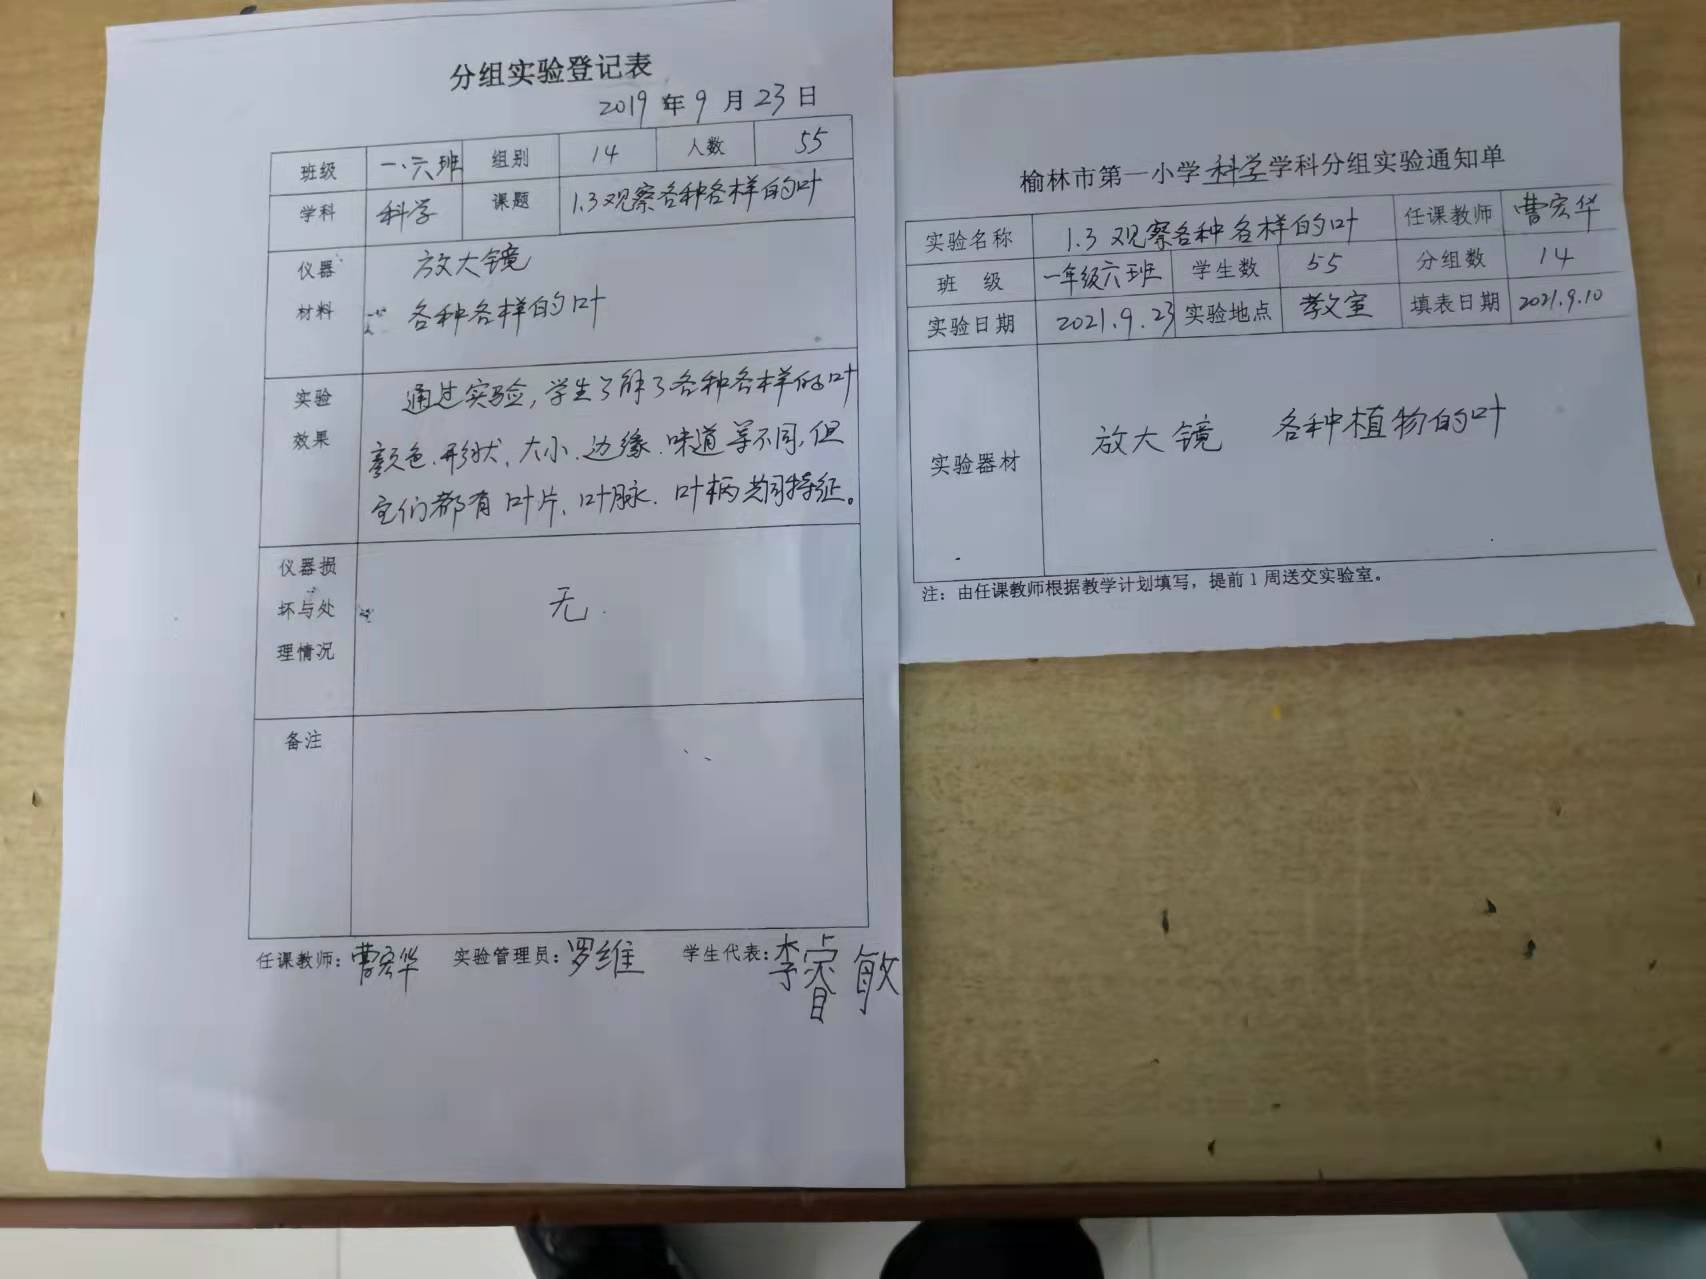 分组实验登记表
2019年9月23日
班级 一.六班 组别 14 人数 55
学科 科学 课题 1.3观察各种各样的叶
仪器材料 放大镜
各种各样的叶
实验效果 通过实验,学生了解了各种各样的叶
颜色、形状、大小、边缘、味道等不同,但
它们都有叶片、叶脉、叶柄共同特征。
仪器损坏与处理情况 无.
备注
任课教师:曹宏华 实验管理员:罗维 学生代表:李睿敏
榆林市第一小学科学学科分组实验通知单
实验名称 1.3 观察各种各样的叶 任课教师 曹宏华
班级 一年级六班 学生数 55 分组数 14
实验日期 2021.9.23 实验地点 教室 填表日期 2021.9.10
实验器材 放大镜 各种植物的叶
注:由任课教师根据教学计划填写,提前1周送交实验室。